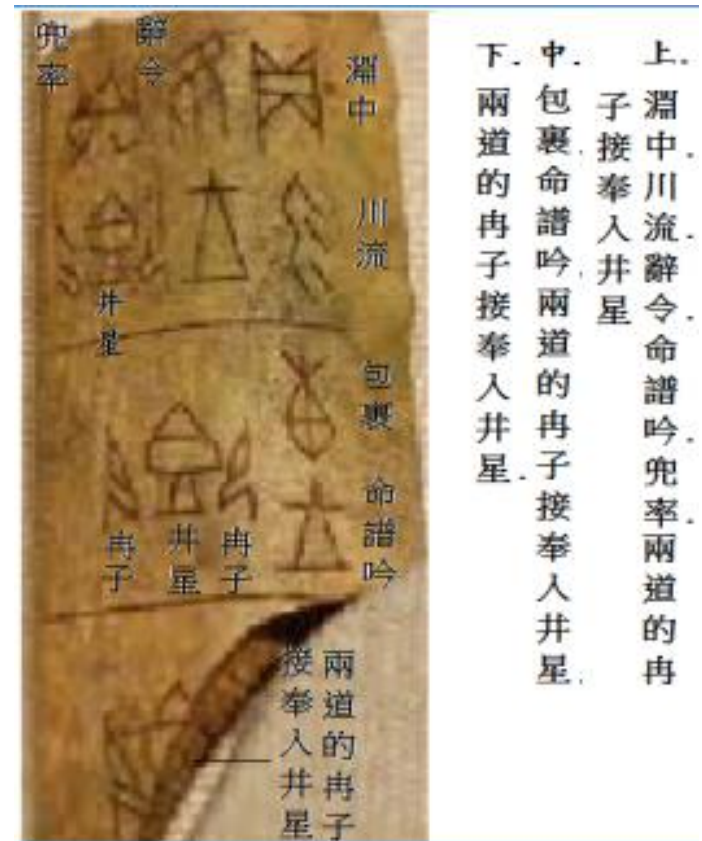 上. 淵中. 川流. 辭令. 命譜吟. 兜率. 兩道的冉
子接奉入井星
中. 包裹. 命譜吟. 兩道的冉子接奉入井星.
下. 兩道的冉子接奉入井星.
淵中
辭令
兜率
川流
井星
包裹
命譜吟
冉子
井星
冉子
兩道的冉子
接奉入井星